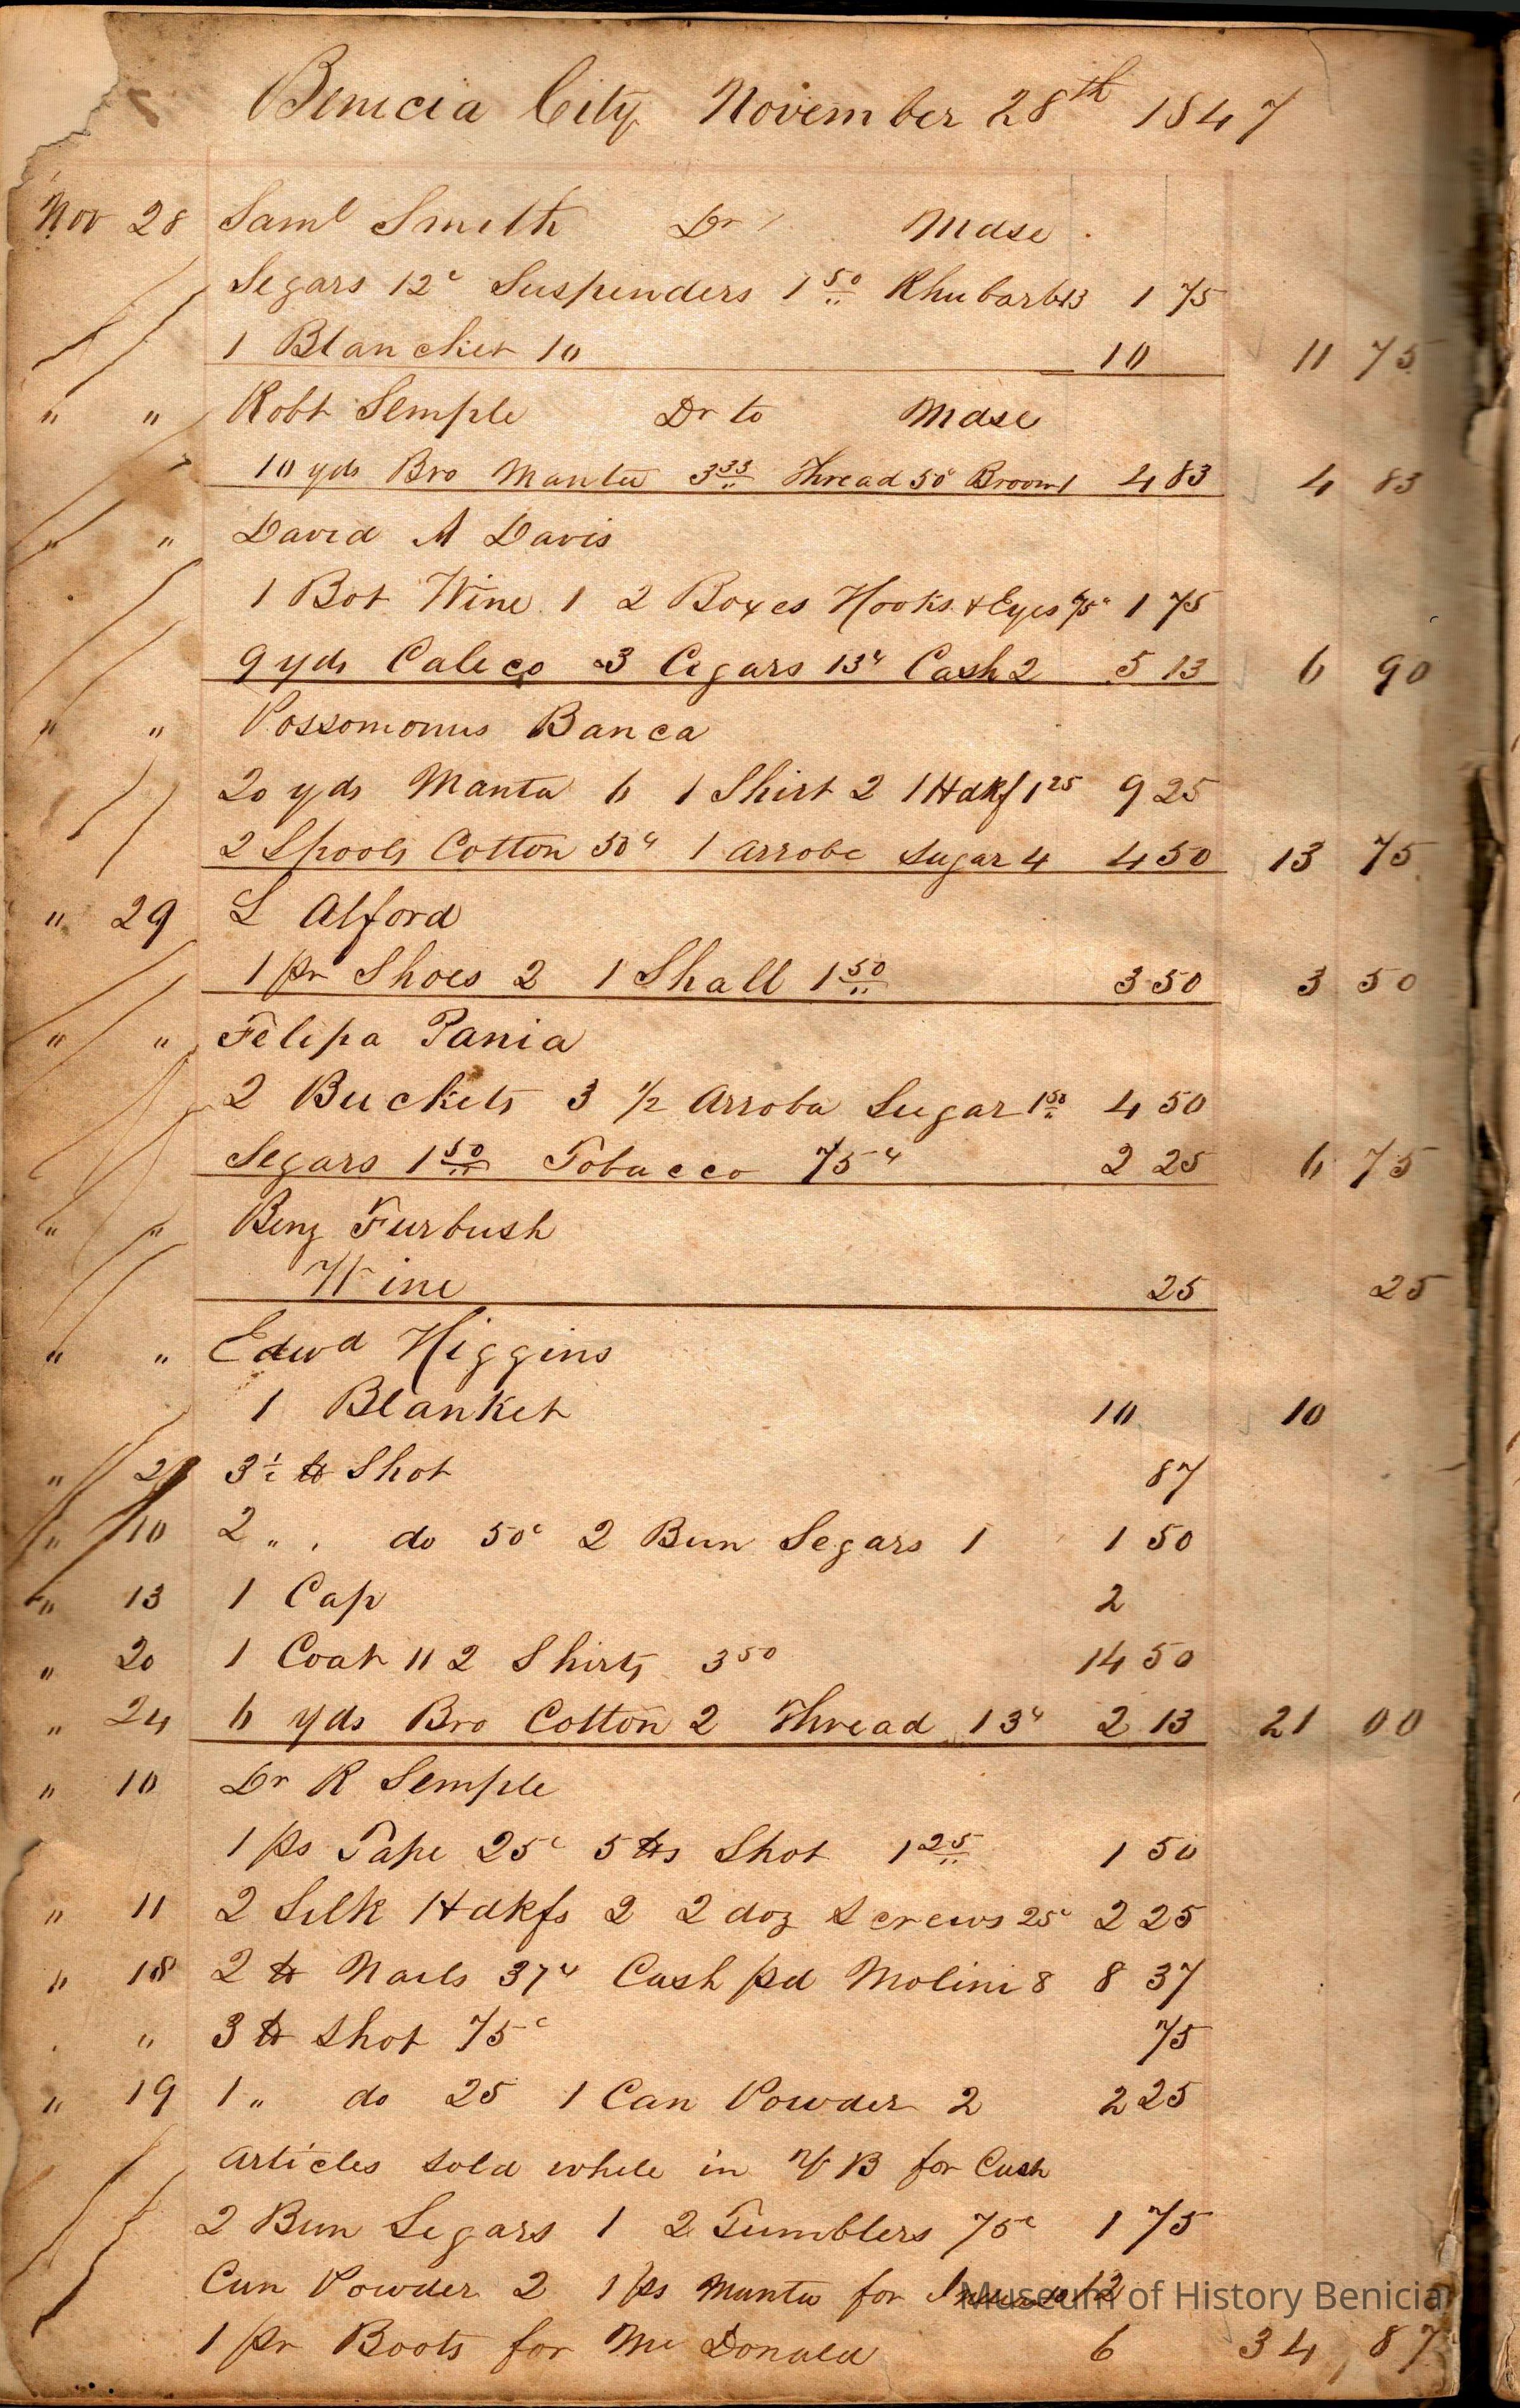 Benicia City November 28th 1847
Nov 28 Saml Smith Dr Mdse
Segars 12c Suspenders 1 50 Rhubarb 13 1 75
1 Blancket 10 10 11 75
" " Robt Semple Dr to Mdse
10 yds Bro Manta 3 33 Thread 50c Broom 1 4 83 4 83
" " David A Davis
1 Bot Wine 1 2 Boxes Hooks & Eyes 75c 1 75
9 yds Caleco 3 Cegars 13c Cash 2 5 13 6 90
" " Possomonus Banca
20 yds Manta 6 1 Shirt 2 1 Hdkf 1 25 9 25
2 Spools Cotton 50c 1 Arrobe Sugar 4 4 50 13 75
" 29 L Alford
1 pr Shoes 2 1 Shall 1 50 3 50 3 50
" " Felipa Pania
2 Buckets 3 1/2 Arroba Sugar 1 50 4 50
Segars 1 50 Tobacco 75c 2 25 6 75
" " Benz Furbush
Wine 25 25
" " Edwd Higgins
1 Blanket 10 10
" 3 ½ lb Shot 87
" 10 2 " . do 50c 2 Bun Segars 1 1 50
" 13 1 Cap 2
" 20 1 Coat 11 2 Shirts 3 50 14 50
" 24 6 yds Bro Cotton 2 Thread 13c 2 13 21 00
" 10 Dr R Semple
1 ps Tape 25c 5 lbs Shot 1 25 1 50
" 11 2 Silk Hdkfs 2 2 doz Screws 25c 2 25
" 18 2 lb Nails 37c Cash pd Molini 8 8 37
" 3 lb Shot 75c 75
" 19 1 " do 25 1 Can Powder 2 2 25
Articles sold while in Y B for Cash
2 Bun Segars 1 2 Tumblers 75c 1 75
Can Powder 2 1 ps Manta for 12
Museum of History Benicia
1 pr Boots for Mc Donald 6 34 87